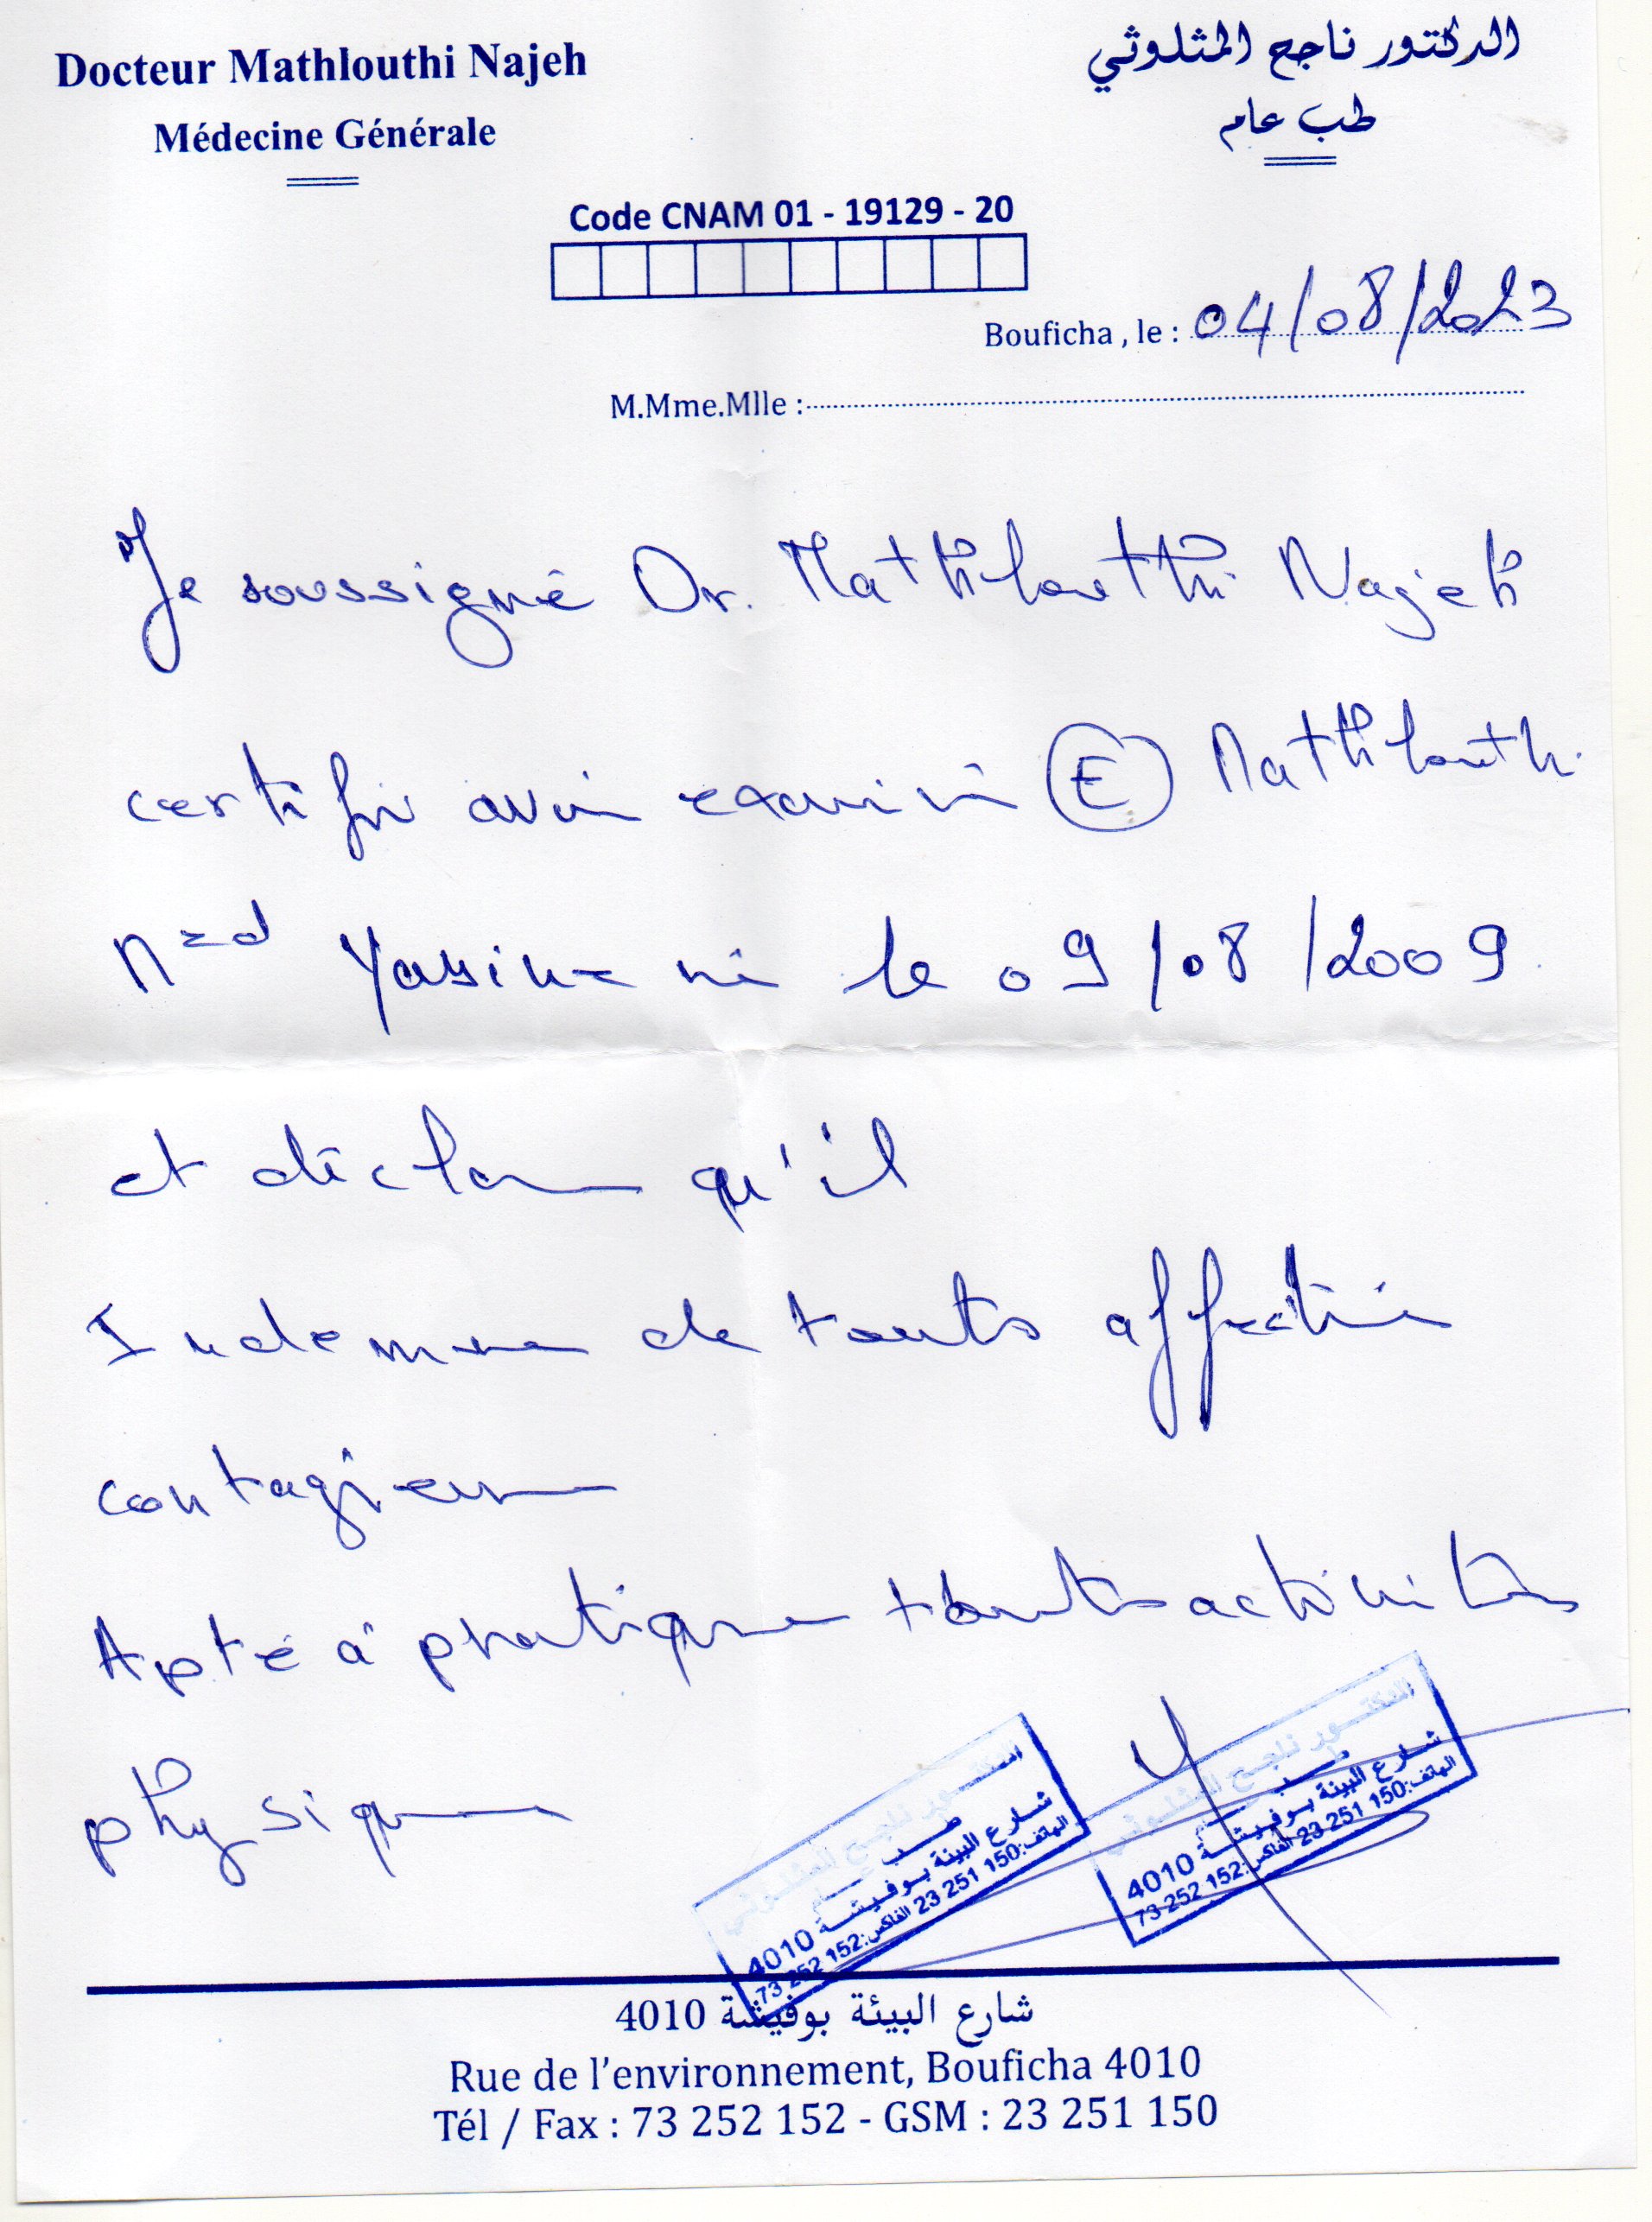 Docteur Mathlouthi Najeh
Médecine Générale
الدكتور ناجح المثلوثي
طب عام
Code CNAM 01 - 19129 - 20
Bouficha , le : 04/08/2023
M.Mme.Mlle :
Je soussigné Dr. Mathlouthi Najeh
certifie avoir examiné E Mathlouthi
Med Yassine né le 09/08/2009
et déclare qu'il
Indemne de toutes affection
contagieuse
Apte à pratiquer toutes activités
physique
الدكتور ناجح المثلوثي
طب عام
شارع البيئة بوفيشة 4010
الهاتف:150 251 23 الفاكس:152 252 73
الدكتور ناجح المثلوثي
طب عام
شارع البيئة بوفيشة 4010
الهاتف:150 251 23 الفاكس:152 252 73
شارع البيئة بوفيشة 4010
Rue de l'environnement, Bouficha 4010
Tél / Fax : 73 252 152 - GSM : 23 251 150